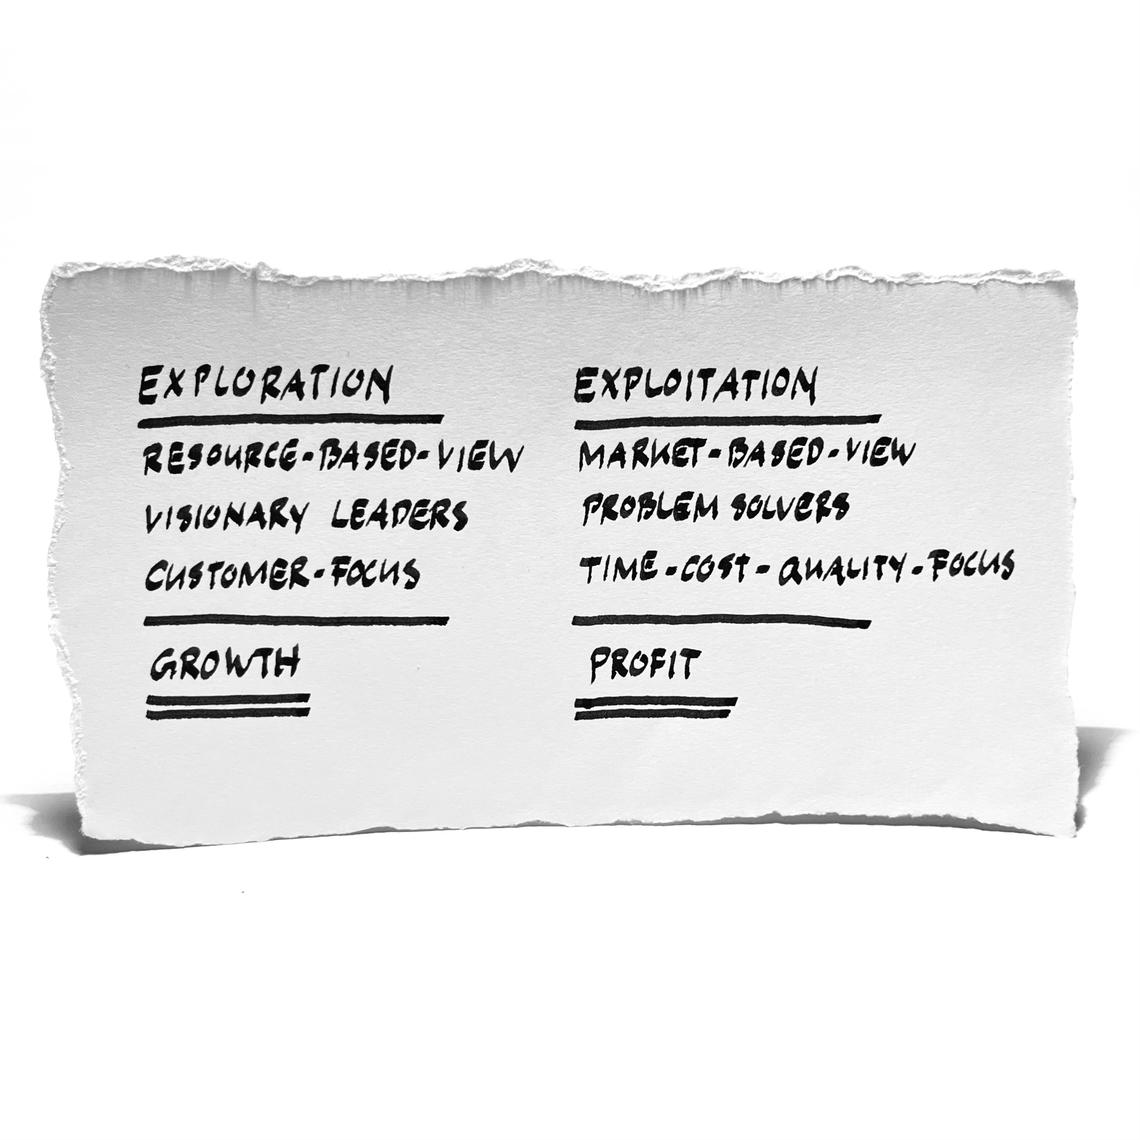 EXPLORATION
RESOURCE-BASED-VIEW
VISIONARY LEADERS
CUSTOMER-FOCUS
GROWTH
EXPLOITATION
MARKET-BASED-VIEW
PROBLEM SOLVERS
TIME-COST-QUALITY-FOCUS
PROFIT